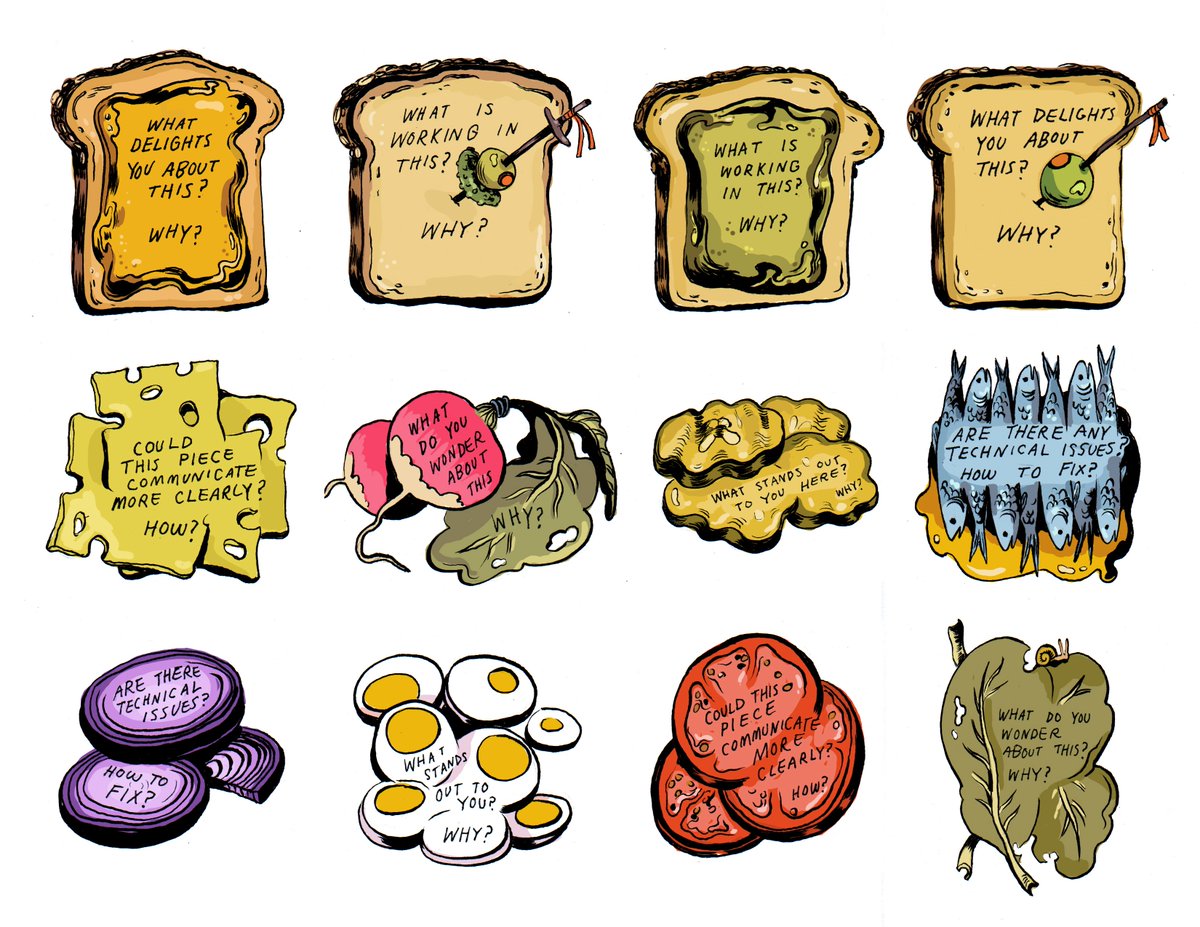 WHAT
DELIGHTS
YOU ABOUT
THIS?
WHY?
WHAT IS
WORKING IN
THIS?
WHY?
WHAT IS
WORKING
IN THIS?
WHY?
WHAT DELIGHTS
YOU ABOUT
THIS?
WHY?
COULD
THIS PIECE
COMMUNICATE
MORE CLEARLY?
HOW?
WHAT
DO YOU
WONDER
ABOUT
THIS
WHY?
WHAT STANDS OUT
TO YOU HERE?
WHY?
ARE THERE ANY
TECHNICAL ISSUES?
HOW TO FIX?
ARE THERE
TECHNICAL
ISSUES?
HOW TO
FIX?
WHAT
STANDS
OUT TO
YOU?
WHY?
COULD THIS
PIECE
COMMUNICATE
MORE
CLEARLY?
HOW?
WHAT DO YOU
WONDER
ABOUT THIS?
WHY?